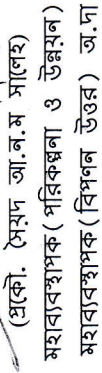 (প্রকৌ. সৈয়দ আ.ন.ম সালেহ)
মহাব্যবস্থাপক( পরিকল্পনা ও উন্নয়ন)
মহাব্যবস্থাপক(বিপণন উত্তর) অ.দা